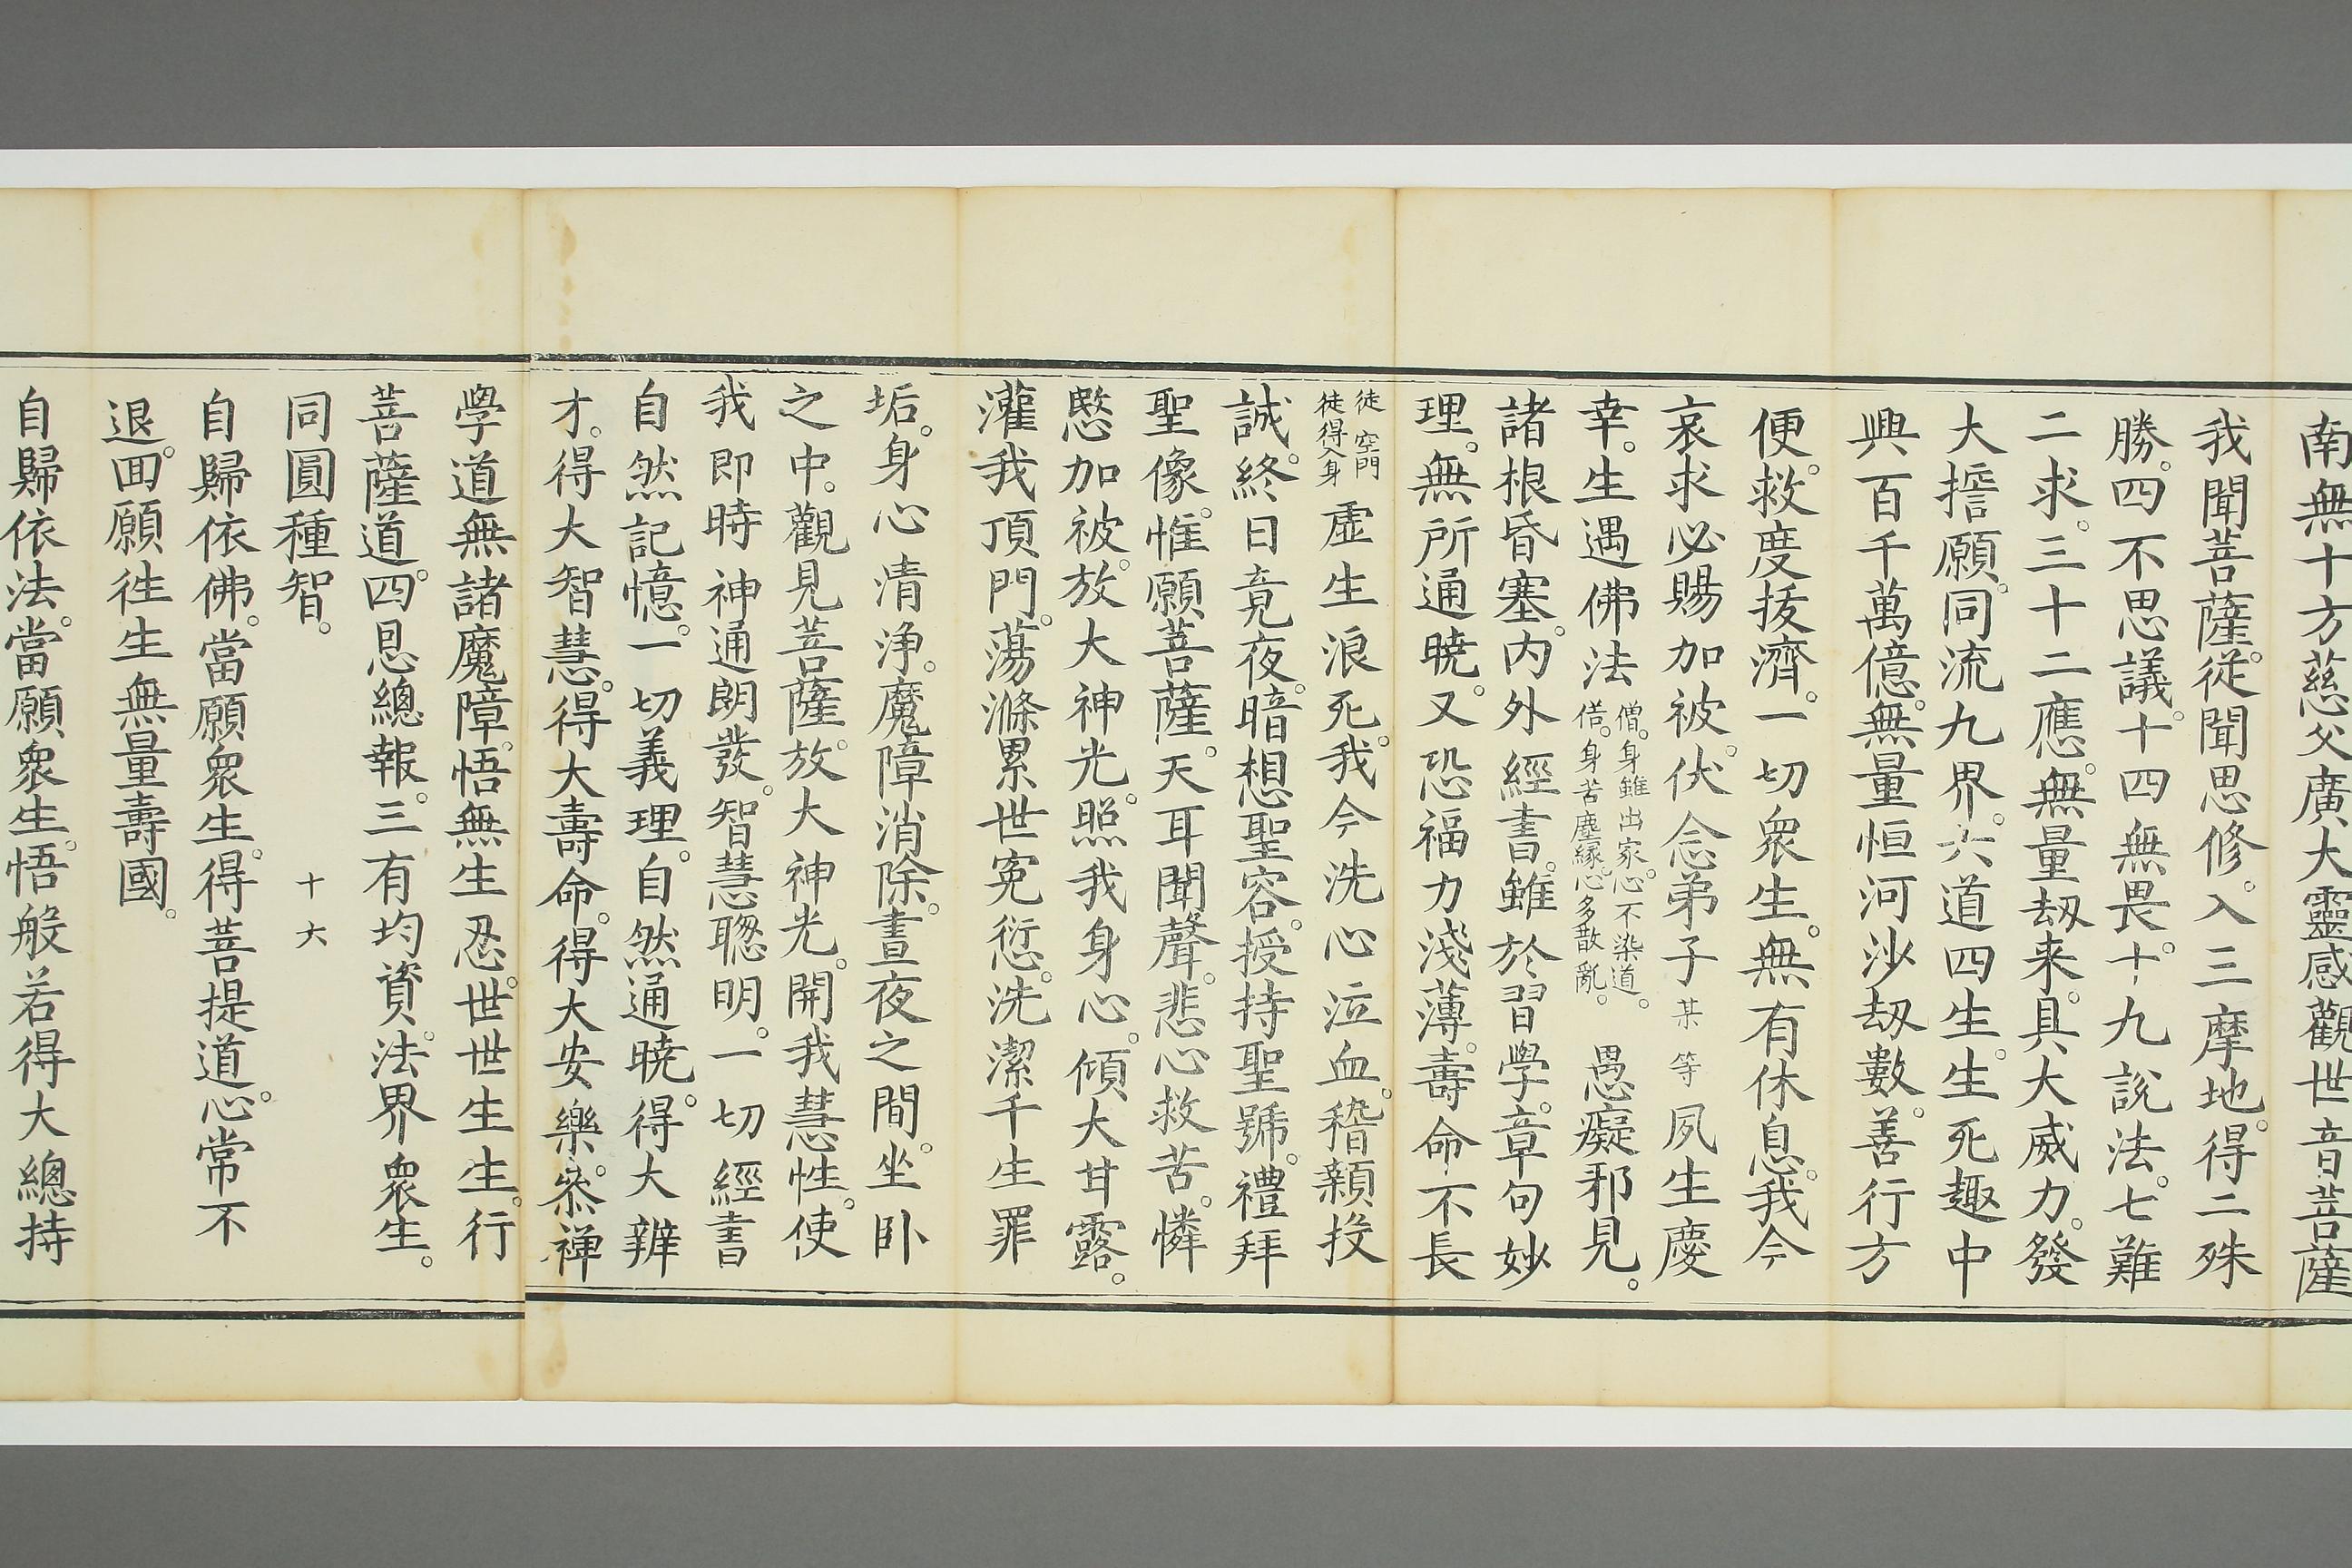 南無十方慈父廣大靈感觀世音菩薩
我聞菩薩。從聞思修。入三摩地。得二殊
勝。四不思議。十四無畏。十九說法。七難
二求。三十二應。無量劫来。具大威力。發
大誓願。同流九界。六道四生。生死趣中
興百千萬億。無量恒河沙劫數。善行方
便。救度拔濟。一切眾生。無有休息。我今
哀求必賜加被。伏念弟子某等夙生慶
幸。生遇佛法僧。身雖出家。心不染道。俗。身苦塵緣。心多散亂。愚癡邪見。
諸根昏塞。内外經書。雖於習學。章句妙
理。無所通曉。又恐福力淺薄。壽命不長
徒空門徒得人身虛生浪死。我今洗心泣血。稽顙投
誠。終日竟夜。暗想聖容。授持聖號。禮拜
聖像。惟願菩薩。天耳聞聲。悲心救苦。憐
愍加被。放大神光。照我身心。傾大甘露。
灌我頂門。蕩滌累世冤愆。洗潔千生罪
垢。身心清淨。魔障消除。晝夜之間。坐臥
之中。觀見菩薩。放大神光。開我慧性。使
我即時神通朗發。智慧聰明。一切經書
自然記憶。一切義理。自然通曉。得大辯
才。得大智慧。得大壽命。得大安樂。叅禅
學道無諸魔障。悟無生忍。世世生生。行
菩薩道。四恩總報。三有均資。法界眾生。
同圓種智。
十六
自歸依佛。當願眾生。得菩提道。心常不
退。囬願徃生無量壽國。
自歸依法。當願眾生。悟般若得大總持